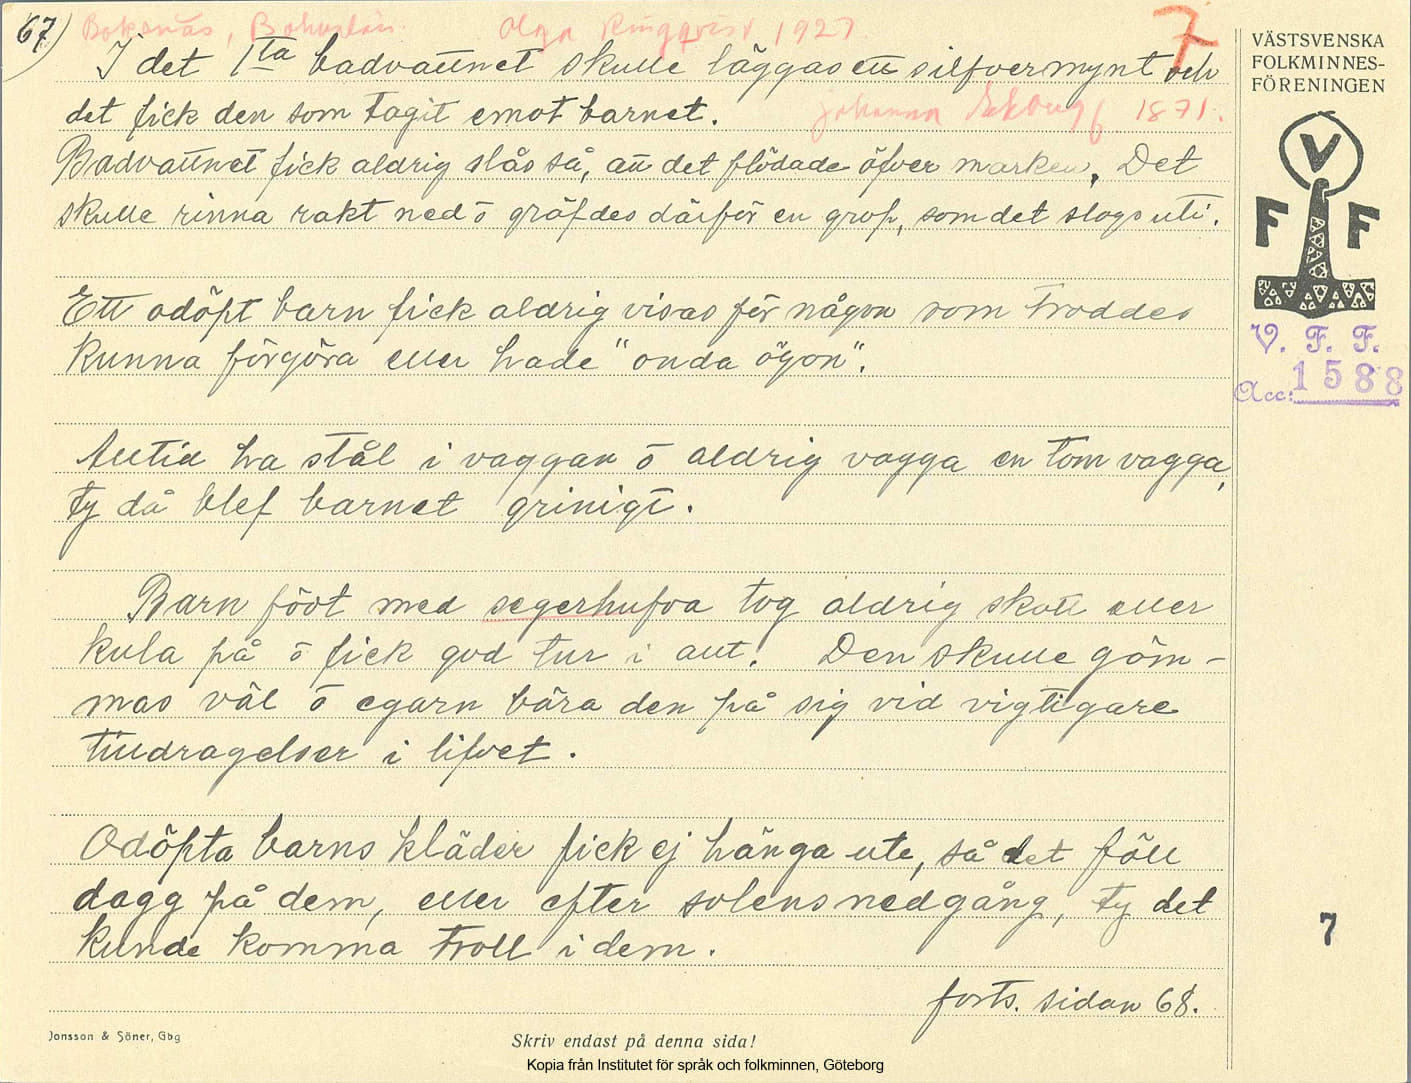 67)
Bokenäs, Bohuslän. Olga Ringqvist 1927
7
I det 1sta badvattnet skulle läggas ett silfvermynt och
det fick den som tagit emot barnet.
Johanna Ekberg f 1871.
Badvattnet fick aldrig slås så, att det flödade öfver marken. Det
skulle rinna rakt ned ō gräfdes därför en grop, som det slogs uti.
Ett odöpt barn fick aldrig visas för någon som troddes
kunna förgöra eller hade "onda ögon".
Alltid ha stål i vaggan ō aldrig vagga en tom vagga,
ty då blef barnet grinigt.
Barn födt med segerhufva tog aldrig skott eller
kula på ō fick god tur i allt. Den skulle göm-
mas väl ō egarn bära den på sig vid vigtigare
tilldragelser i lifvet.
Odöpta barns kläder fick ej hänga ute, så det föll
dagg på dem, eller efter solens nedgång, ty det
kunde komma troll i dem.
forts. sidan 68.
VÄSTSVENSKA
FOLKMINNES-
FÖRENINGEN
V
F F
V. F. F.
Acc: 1588
7
Jonsson & Söner, Gbg
Skriv endast på denna sida!
Kopia från Institutet för språk och folkminnen, Göteborg